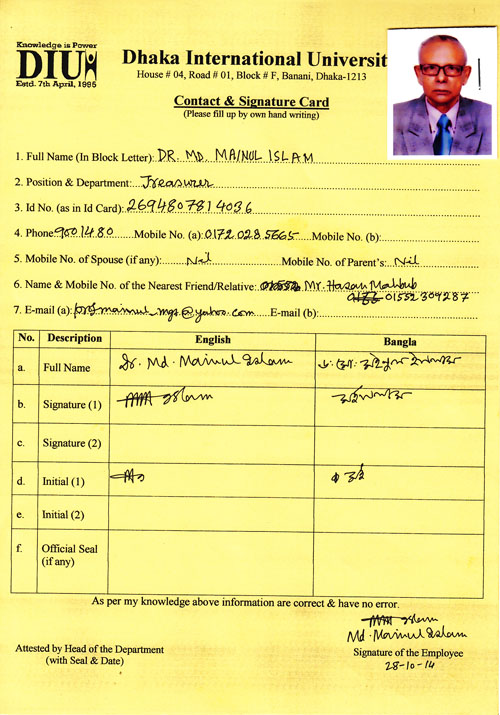 Knowledge is Power
DIU
Estd. 7th April, 1995
Dhaka International Universit
House # 04, Road # 01, Block # F, Banani, Dhaka-1213
Contact & Signature Card
(Please fill up by own hand writing)
1. Full Name (In Block Letter): DR. MD. MAINUL ISLAM
2. Position & Department: Treasurer
3. Id No. (as in Id Card): 2694807814036
4. Phone: 9001480 Mobile No. (a): 0172 028 5665 Mobile No. (b):
5. Mobile No. of Spouse (if any): Nil Mobile No. of Parent's: Nil
6. Name & Mobile No. of the Nearest Friend/Relative: Mr. Hasan Mahbub
01552 309287
7. E-mail (a): prof_mainul_mgs@yahoo.com E-mail (b):
No. Description English Bangla
a. Full Name Dr. Md. Mainul Islam ড. মো. মইনুল ইসলাম
b. Signature (1) Islam
c. Signature (2)
d. Initial (1)
e. Initial (2)
f. Official Seal
(if any)
As per my knowledge above information are correct & have no error.
Islam
Md. Mainul Islam
Attested by Head of the Department
(with Seal & Date)
Signature of the Employee
28-10-14